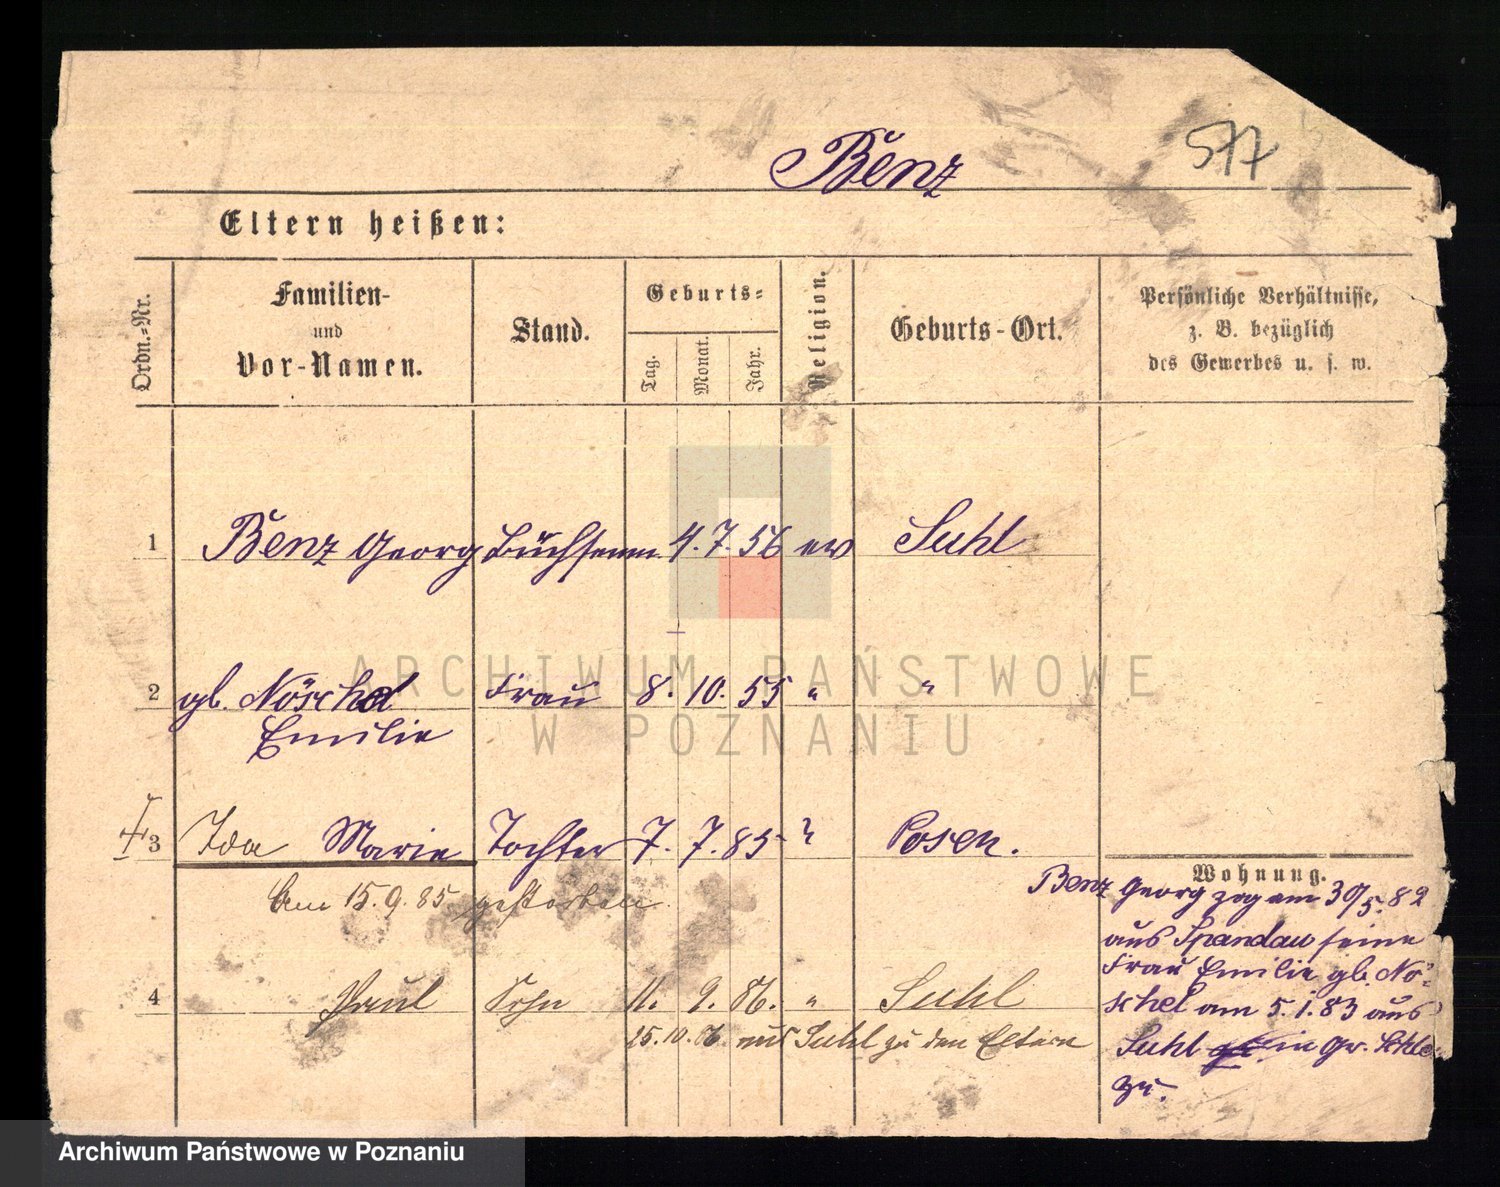 Benz
577
Eltern heißen:
Ordn.-Nr.
Familien-
und
Vor-Namen.
Stand.
Geburts-
Tag.
Monat.
Jahr.
Religion.
Geburts-Ort.
Persönliche Verhältnisse,
z. B. bezüglich
des Gewerbes u. s. w.
1 Benz Georg Büchsenm. 4. 7. 56 ev Suhl
2 gb. Nöschel Frau 8. 10. 55 " "
Emilie
3 Ida Marie Tochter 7. 7. 85 Posen.
Am 15.9.85 gestorben
4 Paul Sohn 11. 9. 86. " Suhl
25.10.86 aus Suhl zu den Eltern
Wohnung.
Benz Georg zog am 30/5.82
aus Spandau seine
Frau Emilie gb. Nö-
schel am 5.1.83 aus
Suhl in Gr.
zu.
ARCHIWUM PAŃSTWOWE
W POZNANIU
Archiwum Państwowe w Poznaniu